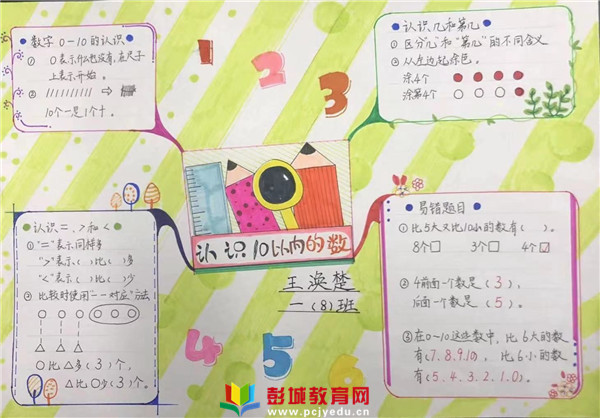 数字0-10的认识
① 0表示什么也没有,在尺子
上表示开始。
② ////////// →
10个一是1个十。
1
2
3
认识几和第几
① 区分"几"和"第几"的不同含义
② 从左边起涂色。
涂4个
涂第4个
认识10以内的数
王涣楚
一(8)班
认识=、>和<
① "="表示同样多
">"表示( )比( )多
"<"表示( )比( )少
② 比较时使用"一一对应"方法
○比△多(3)个,
△比○少(3)个。
易错题目
① 比5大又比10小的数有( )。
8个□ 3个□ 4个☑
② 4前面一个数是(3),
后面一个数是(5)。
③ 在0~10这些数中,比6大的数
有(7.8.9.10),比6小的数
有(5.4.3.2.1.0)。
4
5
6
彭城教育网
www.pcjyedu.cn